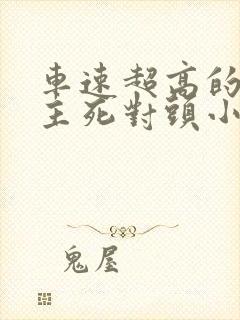 車速超高的
主死對頭小
鬼屋